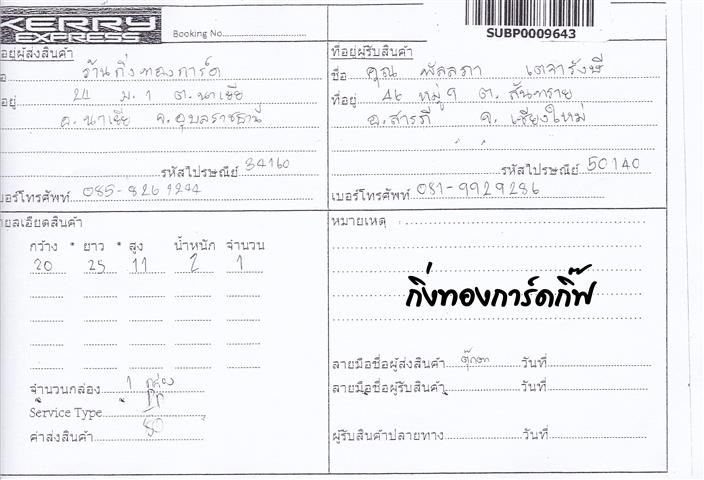 KERRY
EXPRESS
Booking No.
SUBP0009643
อยู่ผู้ส่งสินค้า
ร้านกิ่งทองการ์ด
อยู่ 24 ม.1 ต.นาเยีย
อ.นาเยีย จ.อุบลราชธานี
รหัสไปรษณีย์ 34160
เบอร์โทรศัพท์ 085-826
ที่อยู่ผู้รับสินค้า
ชื่อ คุณ พัลลภา เตจารังษี
ที่อยู่ 46 หมู่ 9 ต. สันทราย
อ.สารภี จ. เชียงใหม่
รหัสไปรษณีย์ 50140
เบอร์โทรศัพท์ 081-9929286
ยละเอียดสินค้า
กว้าง * ยาว * สูง น้ำหนัก จำนวน
20 25 11 2 1
จำนวนกล่อง 1 กล่อง
Service Type
ค่าส่งสินค้า 80
หมายเหตุ
กิ่งทองการ์ดกิ๊ฟ
ลายมือชื่อผู้ส่งสินค้า ตุ๊กตา วันที่
ลายมือชื่อผู้รับสินค้า วันที่
ผู้รับสินค้าปลายทาง วันที่